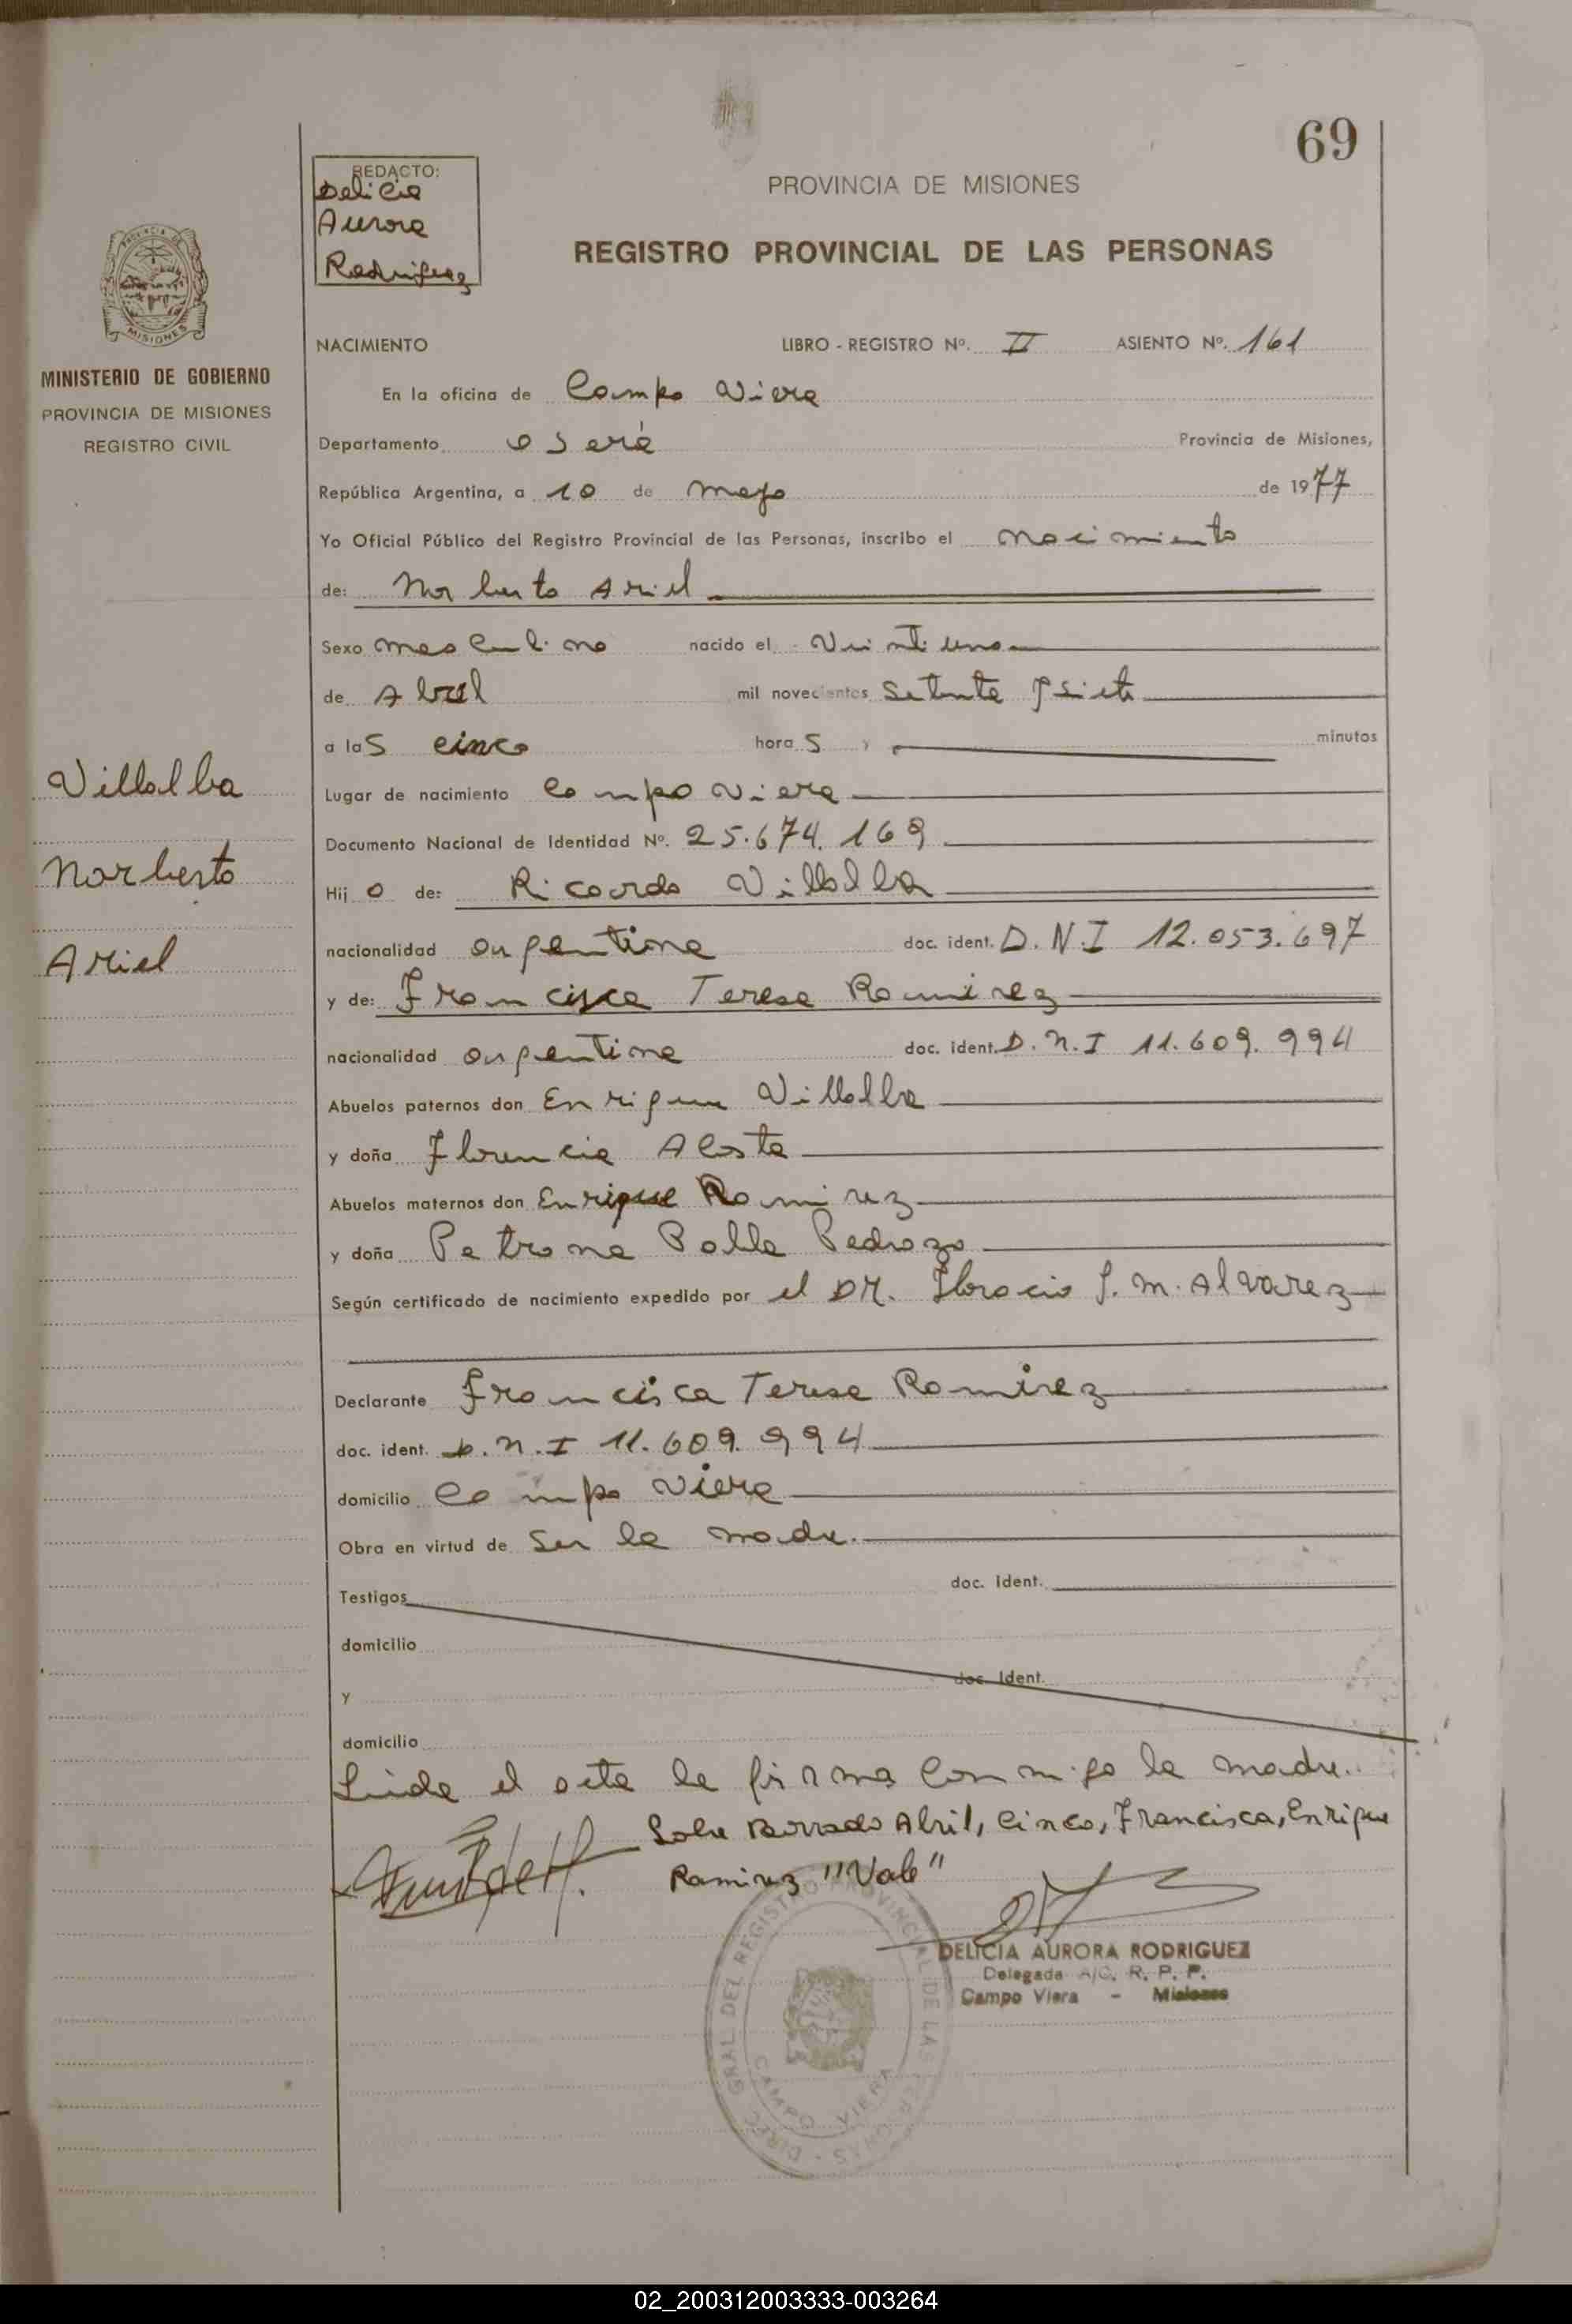 69
REDACTO:
Delicia
Aurora
Rodriguez
PROVINCIA DE MISIONES
REGISTRO PROVINCIAL DE LAS PERSONAS
MISIONES
MINISTERIO DE GOBIERNO
PROVINCIA DE MISIONES
REGISTRO CIVIL
NACIMIENTO LIBRO - REGISTRO Nº. II ASIENTO Nº. 161
En la oficina de Campo Viera
Departamento Oberá Provincia de Misiones,
República Argentina, a 10 de mayo de 1977
Yo Oficial Público del Registro Provincial de las Personas, inscribo el nacimiento
de: Norberto Ariel
Sexo masculino nacido el Veintiuno
de Abril mil novecientos setenta y siete
a las cinco horas y minutos
Lugar de nacimiento Campo Viera
Documento Nacional de Identidad Nº. 25.674.169
Hijo de: Ricardo Villalba
nacionalidad argentina doc. ident. D.N.I 12.053.697
y de: Francisca Teresa Ramirez
nacionalidad argentina doc. ident. D.N.I 11.609.994
Abuelos paternos don Enrique Villalba
y doña Florencia Acosta
Abuelos maternos don Enrique Ramirez
y doña Petrona Pabla Pedrozo
Según certificado de nacimiento expedido por el DR. Horacio J. M. Alvarez
Declarante Francisca Teresa Ramirez
doc. ident. D.N.I 11.609.994
domicilio Campo Viera
Obra en virtud de ser la madre.
Testigos doc. Ident.
domicilio
y doc. Ident.
domicilio
Villalba
Norberto
Ariel
Leida el acta la firma conmigo la madre.
Sobre Borrado Abril, Cinco, Francisca, Enrique
Ramirez "Vale"
DELICIA AURORA RODRIGUEZ
Delegada A/C. R. P. P.
Campo Viera - Misiones
DIREC. GRAL DEL REGISTRO PROVINCIAL DE LAS PERSONAS
CAMPO VIERA
02_200312003333-003264